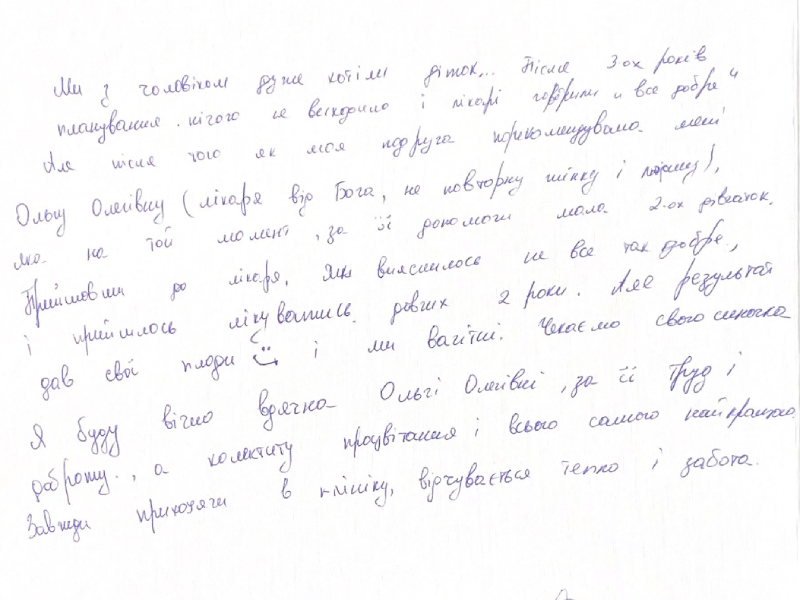 Ми з чоловіком дуже хотіли діток... Після 3-ох років
планування нічого не виходило і лікарі говорили "все добре"
Але після чого як моя подруга порекомендувала мені
Ольгу Олегівну (лікаря від Бога, не повторну жінку і людину),
яка на той момент, за її допомоги мала 2-ох дівчаток.
Прийшовши до лікаря, виявилося не все так добре,
і прийшлось лікуватись довгих 2 роки. Але результат
дав свої плоди і ми вагітні. Чекаємо свого синочка
Я буду вічно вдячна Ользі Олегівні, за її труд і
доброту, а колективу процвітання і всього самого найкращого.
Завжди приходячи в клініку, відчувається тепло і забота.